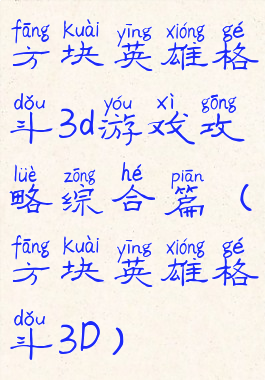 fāng kuài yīng xióng gé
方块英雄格
dǒu yóu xì gōng
斗3d游戏攻
lüè zōng hé piān
略综合篇（
fāng kuài yīng xióng gé
方块英雄格
dǒu
斗3D）